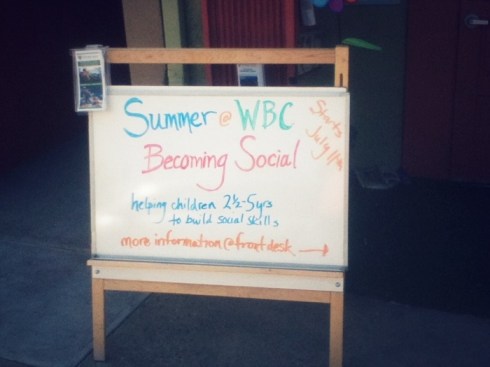 Summer @ WBC
Starts
July 11th
Becoming Social
helping children 2½-5yrs
to build social skills
more information @ front desk →